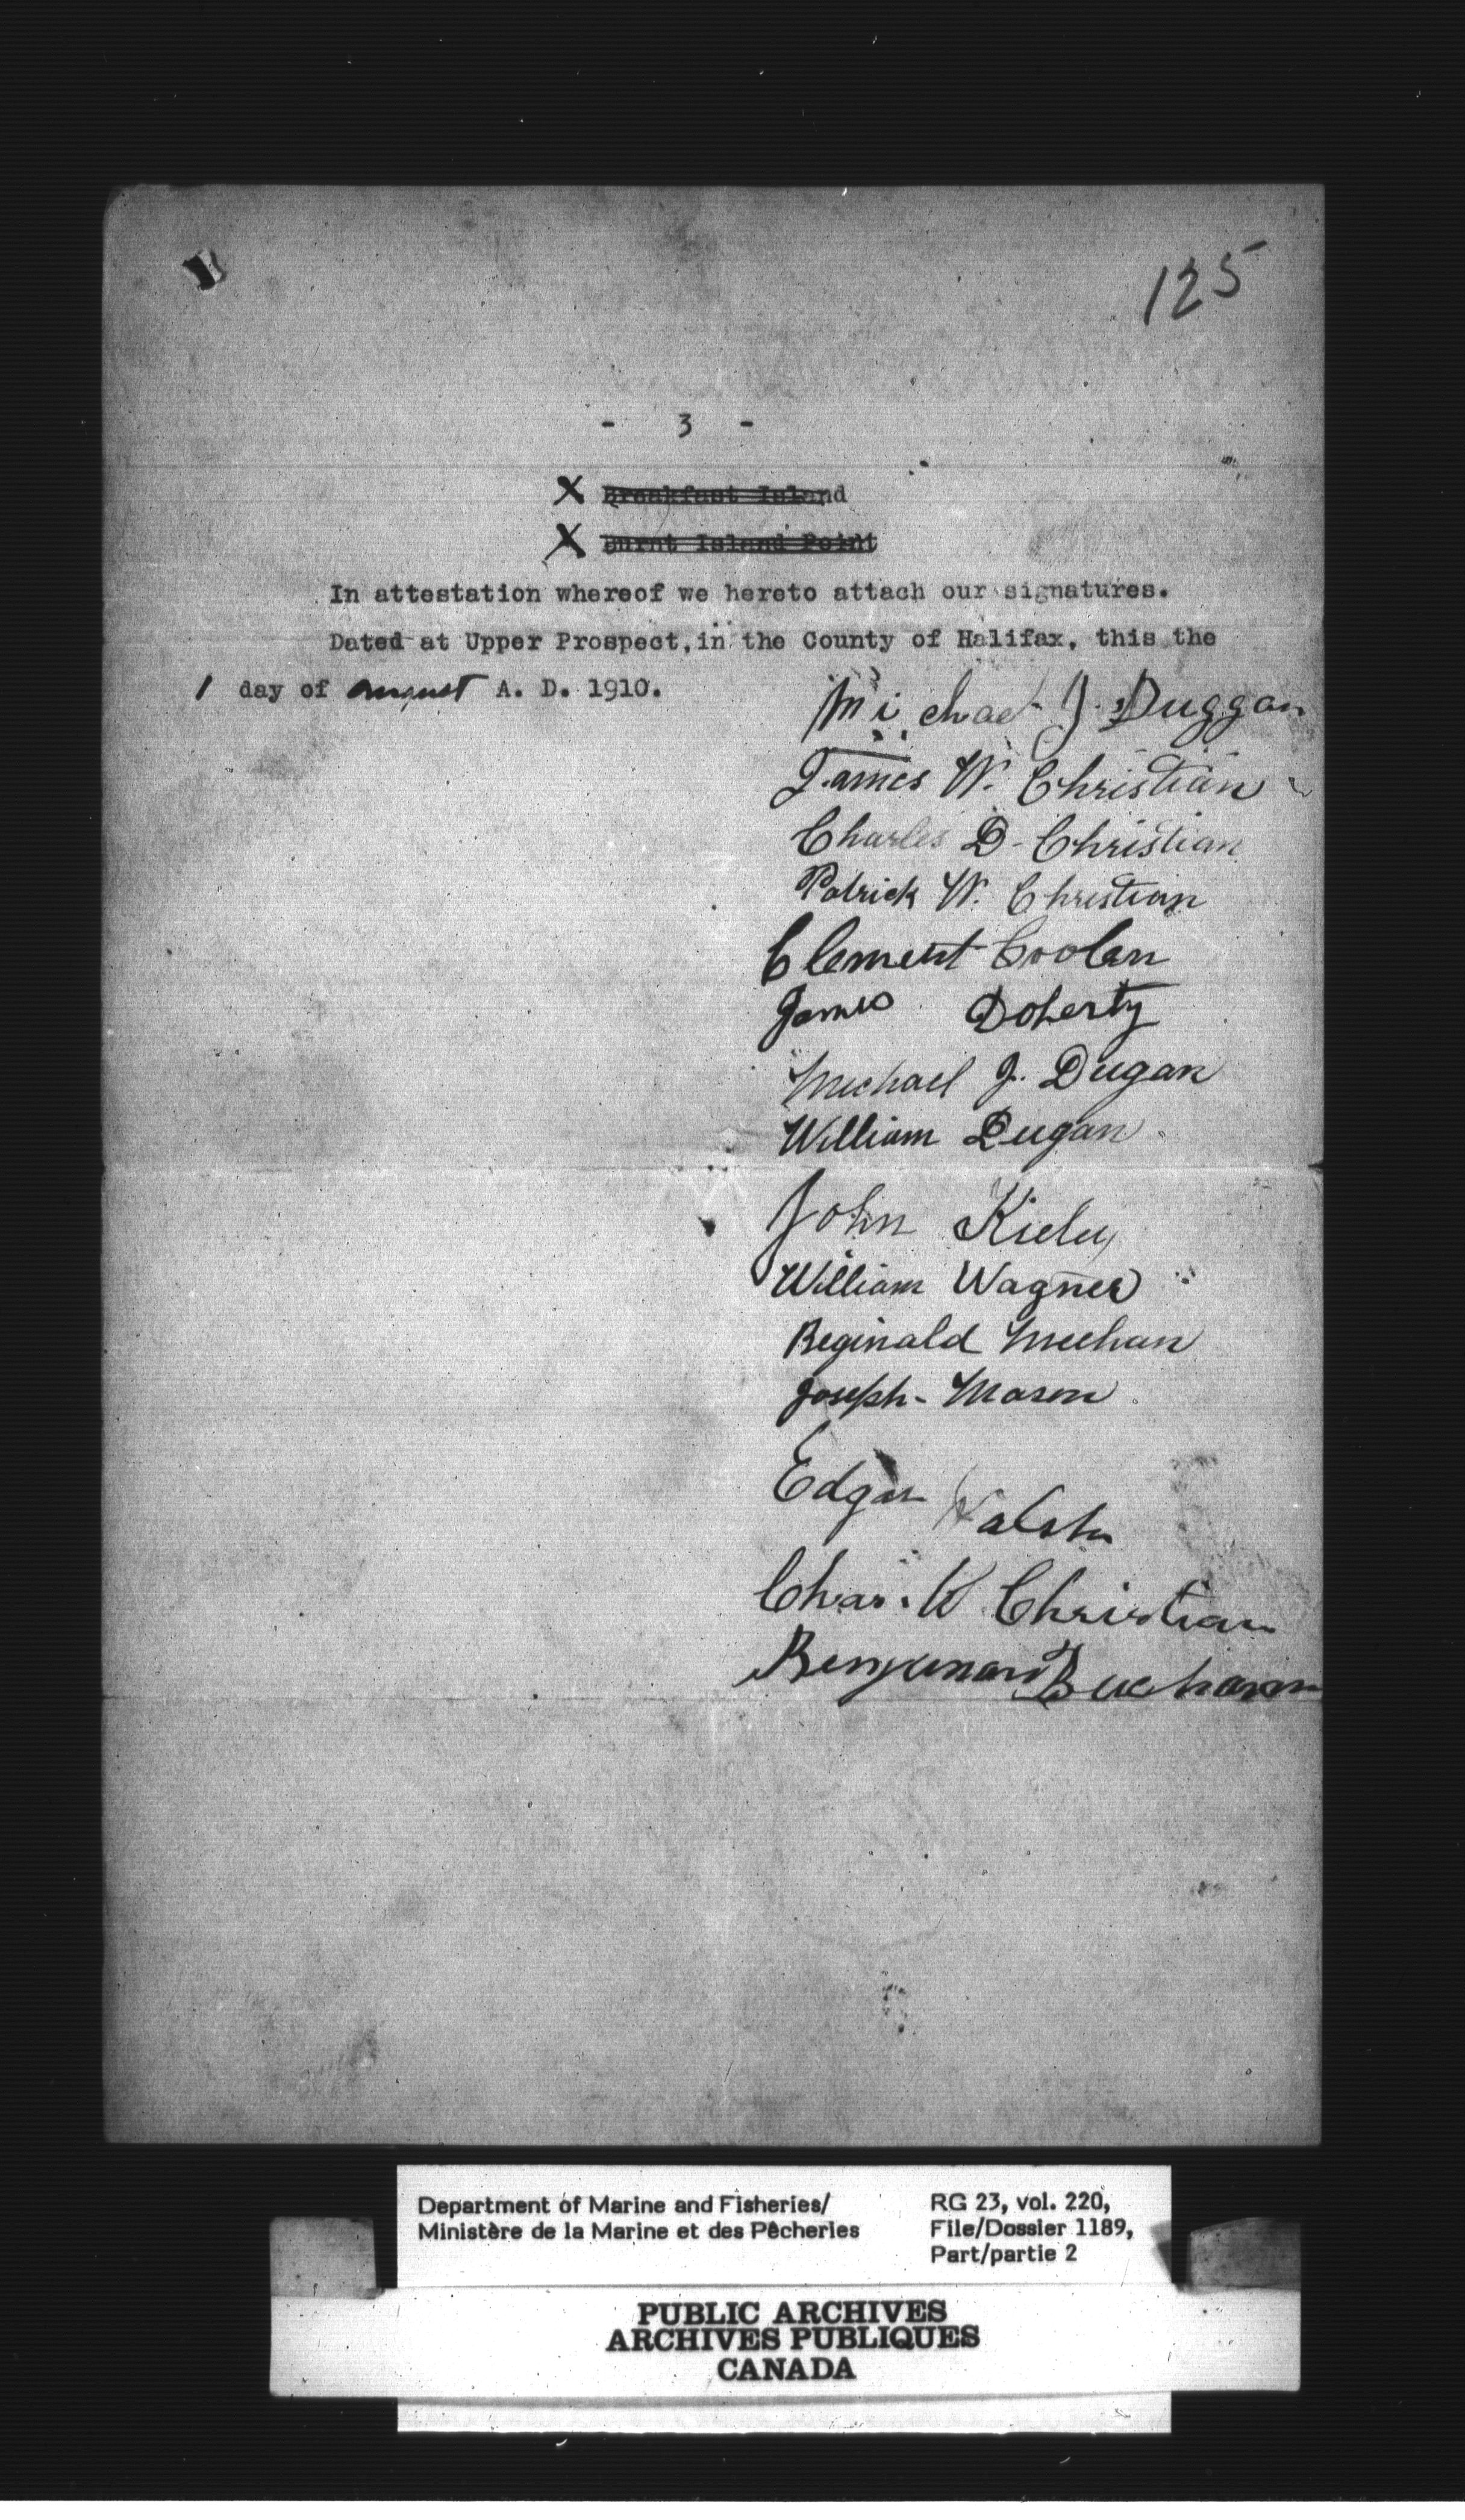 125
- 3 -
X Breakfast Island
X Burnt Island Point
In attestation whereof we hereto attach our signatures.
Dated at Upper Prospect, in the County of Halifax, this the
1 day of August A. D. 1910.
Michael J. Duggan
James W. Christian
Charles D. Christian
Patrick W. Christian
Clement Coolen
James Doherty
Michael J. Dugan
William Dugan
John Kieley
William Wagner
Reginald Meehan
Joseph Mason
Edgar Walsh
Chas. W Christian
Buchanan
Department of Marine and Fisheries/
Ministère de la Marine et des Pêcheries
RG 23, vol. 220,
File/Dossier 1189,
Part/partie 2
PUBLIC ARCHIVES
ARCHIVES PUBLIQUES
CANADA